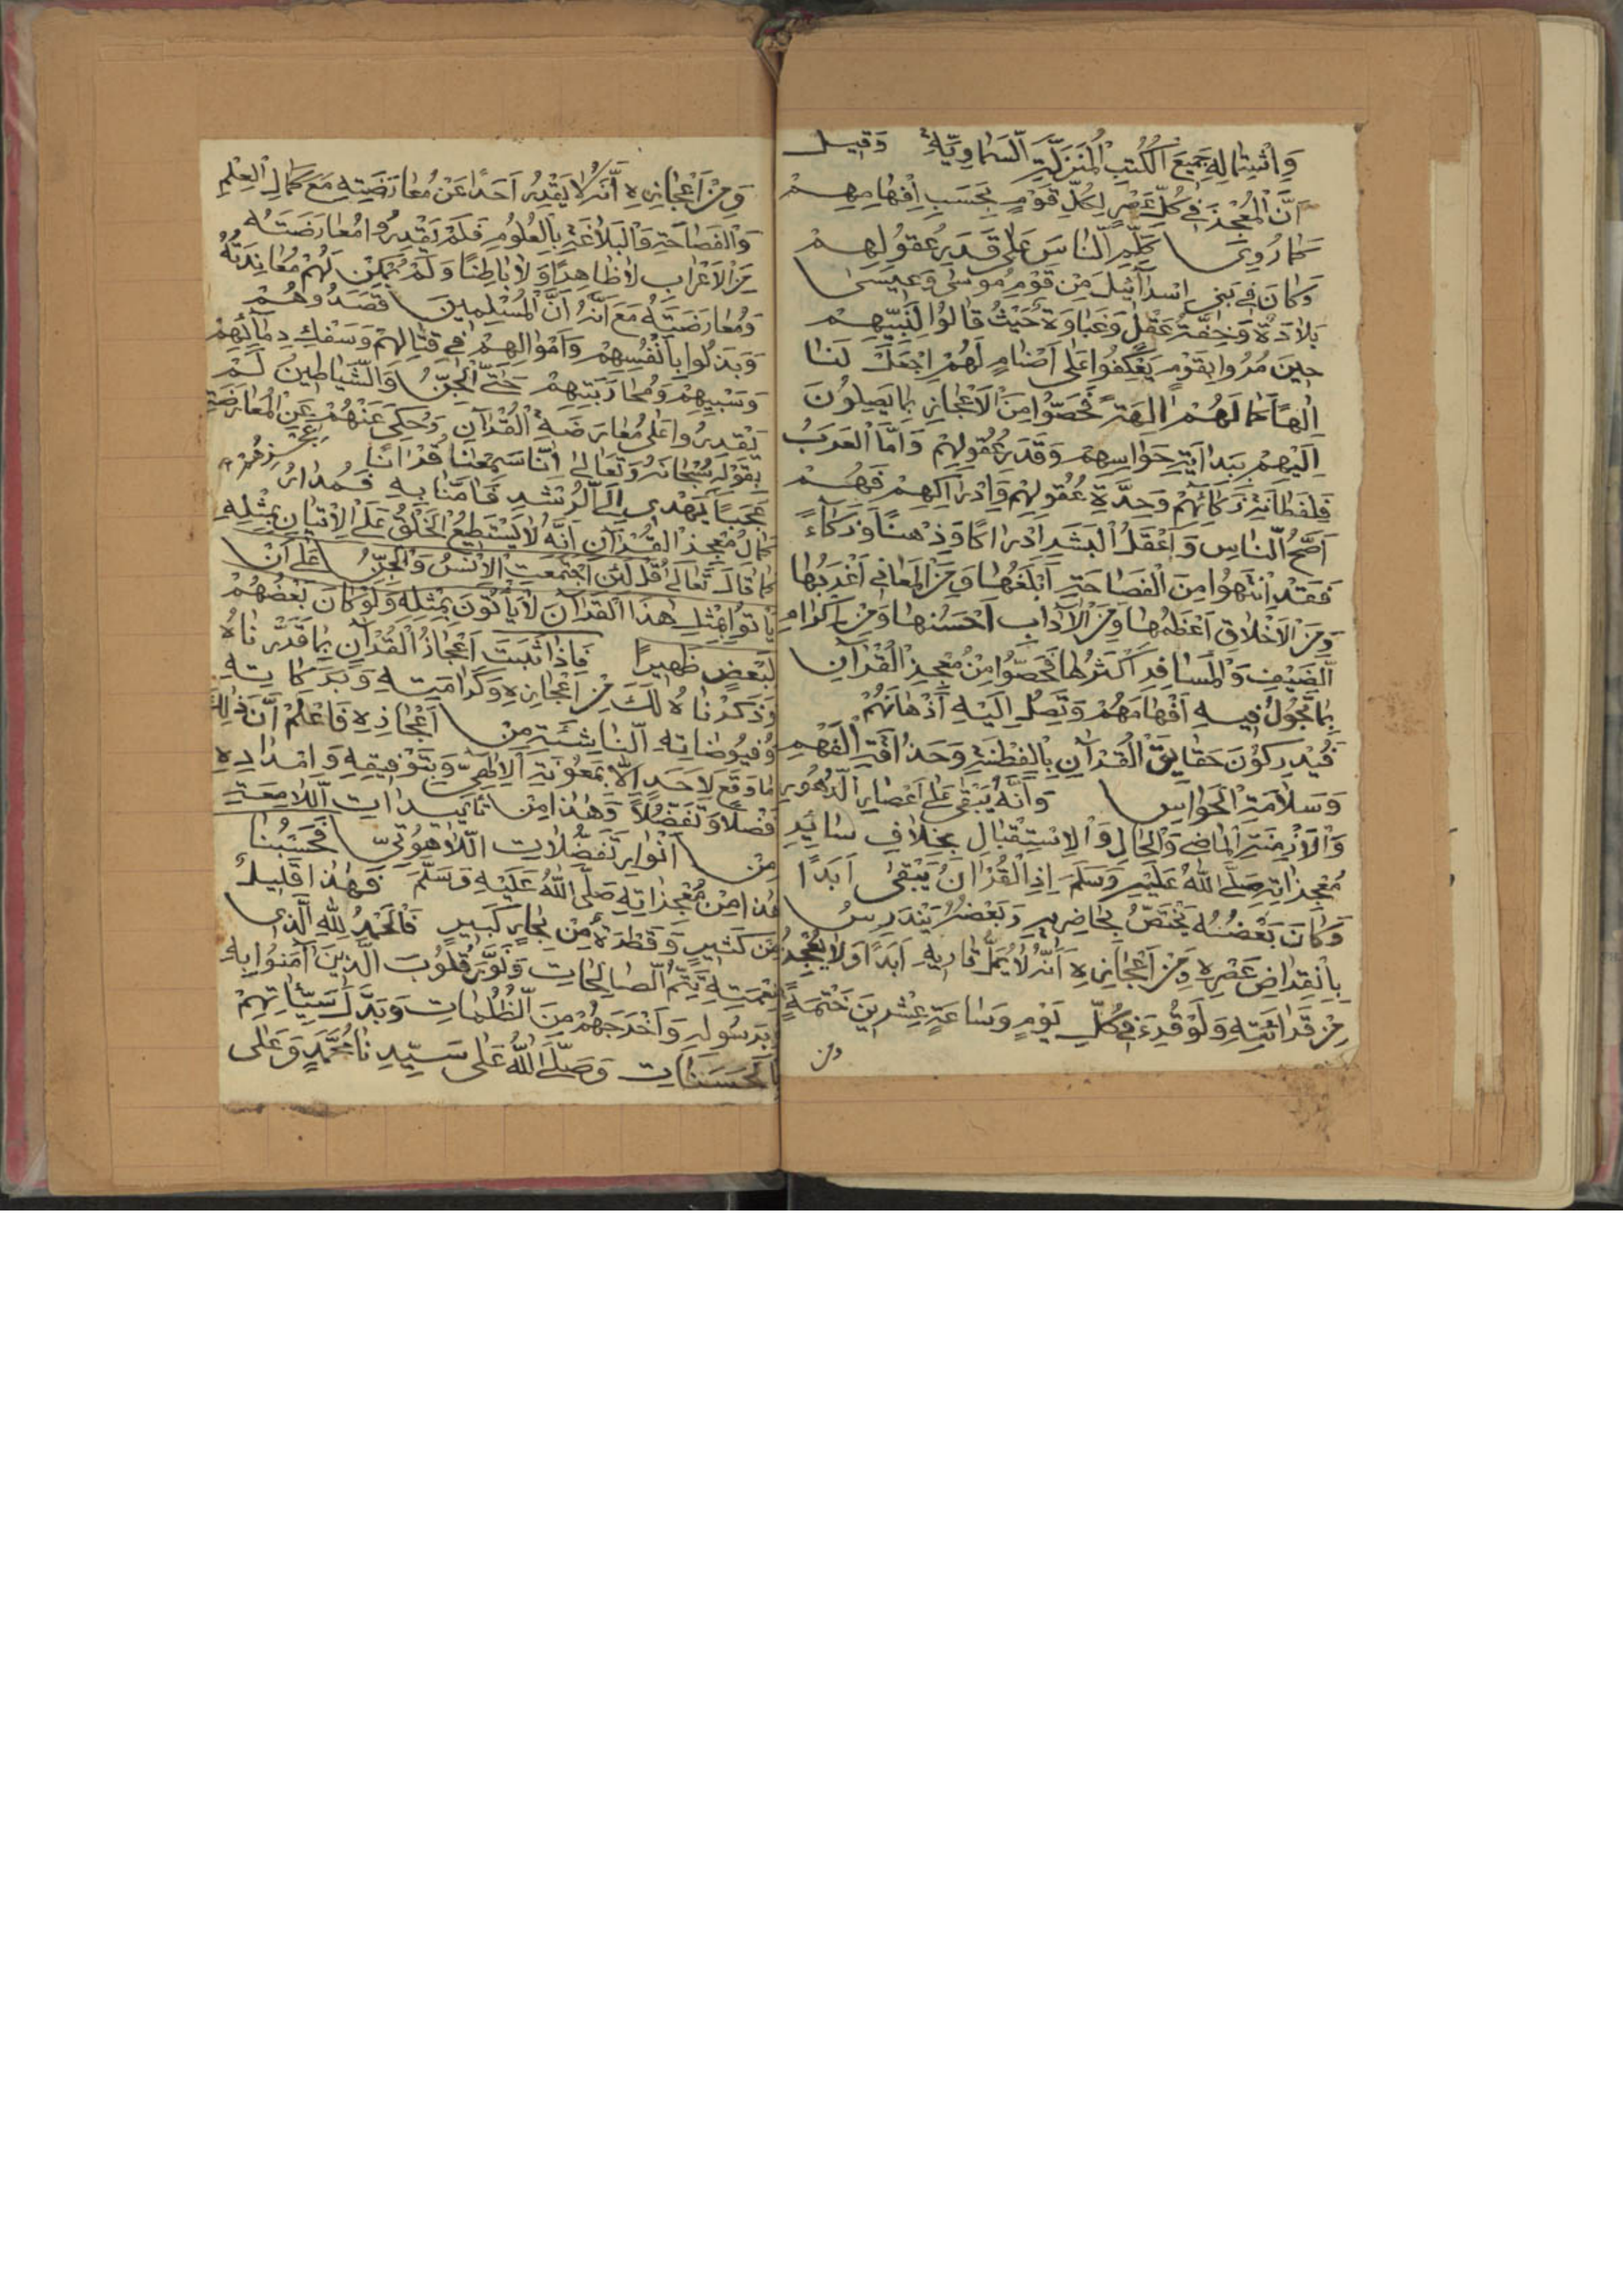 وَاشْتِمَالِهِ جَمِيعَ الْكُتُبِ الْمُنَزَّلَةِ السَّمَاوِيَّةِ وَقِيلَ
اَنَّ الْمُعْجِزَ فِي كُلِّ عَصْرٍ لِكُلِّ قَوْمٍ بِحَسَبِ اِفْهَامِهِمْ
كَمَا رُوِيَ كَلِّمِ النَّاسَ عَلَى قَدَرِ عُقُولِهِمْ
وَكَانَ فِي بَنِي اِسْرَآئِيلَ مِنْ قَوْمِ مُوسَى وَعِيسَى
بَلَادَةٌ وَخِفَّةُ عَقْلٍ وَغَبَاوَةٌ حَيْثُ قَالُوا لِنَبِيِّهِمْ
حِينَ مَرُّوا بِقَوْمٍ يَعْكِفُوا عَلَى اَصْنَامٍ لَهُمْ اِجْعَلْ لَنَا
اِلٰهًا كَمَا لَهُمْ اٰلِهَةٌ فَخُصُّوا مِنَ الْاَعْجَازِ بِمَا يَصِلُونَ
اِلَيْهِمْ بِبَدَايَةِ حَوَاسِهِمْ وَقَدَرِ عُقُولِهِمْ وَاَمَّا الْعَرَبُ
فَلِفَطَانَةِ ذَكَائِهِمْ وَحِدَّةِ عُقُولِهِمْ وَاِدْرَاكِهِمْ فَهُمْ
اَصَحُّ النَّاسِ وَاَعْقَلُ الْبَشَرِ اِدْرَاكًا وَذِهْنًا وَذَكَاءً
فَقَدْ اِنْتَهَوْا مِنَ الْفَصَاحَةِ اَبْلَغُهَا وَمِنَ الْمَعَانِي اَغْرَبُهَا
وَمِنَ الْاَخْلَاقِ اَعْظَمُهَا وَمِنَ الْآدَابِ اَحْسَنُهَا وَمِنْ اِكْرَامِ
الضَّيْفِ وَالْمُسَافِرِ اَكْثَرُهَا فَخُصُّوا مِنْ مُعْجِزِ الْقُرْآنِ
بِمَا تَجُولُ فِيهِ اَفْهَامَهُمْ وَتَصِلُ اِلَيْهِ اَذْهَانَهُمْ
فَيُدْرِكُوْنَ حَقَايِقَ الْقُرْآنِ بِالْفِطْنَةِ وَحَذَاقَةِ الْفَهْمِ
وَسَلَامَةِ الْحَوَاسِ وَاَنَّهُ يَبْقَى عَلَى اَعْصَارِ الدُّهُورِ
وَالْاَزْمِنَةِ الْمَاضِي وَالْحَالِ وَالْاِسْتِقْبَالِ بِخِلَافِ سَائِرِ
مُعْجِزَاتِهِ صَلَّى اللّٰهُ عَلَيْهِ وَسَلَّمَ اِذِ الْقُرْاٰنُ يَبْقَى اَبَدًا
وَكَانَ بَعْضُهُ يَخْتَصُّ بِحَاضِرِيهِ وَبَعْضُهُ يَنْدَرِسُ
بِانْقِرَاضِ عَصْرِهِ وَمِنْ اَعْجَازِهِ اَنَّهُ لَا يَمَلُّ قَارِيهِ اَبَدًا وَلَا يَعْجِزُ
مِنْ قَرَائَتِهِ وَلَوْ قُرِءَ فِي كُلِّ يَوْمٍ وَسَاعَةٍ عِشْرِينَ خَتْمَةً
ومن
وَمِنْ اَعْجَازِهِ اَنَّهُ لَا يَقْدِرُ اَحَدًا عَنْ مُعَارَضَتِهِ مَعَ كَمَالِ الْعِلْمِ
وَالْفَصَاحَةِ وَالْبَلَاغَةِ بِالْعُلُومِ فَلَمْ يَقْدِرُوا مُعَارَضَتَهُ
مِنَ الْاَعْرَابِ لَا ظَاهِرًا وَلَا بَاطِنًا وَلَمْ يُمْكِنْ لَهُمْ مُعَانِدَتُهُ
وَمُعَارَضَتُهُ مَعَ اَنَّهُ اَنَّ الْمُسْلِمِينَ قَصَدُوهُمْ
وَبَذَلُوا بِاَنْفُسِهِمْ وَاَمْوَالِهِمْ فِي قِتَالِهِمْ وَسَفْكِ دِمَآئِهِمْ
وَسَبْيِهِمْ وَمُحَارَبَتِهِمْ حَتَّى الْجِنُّ وَالشَّيَاطِينُ لَمْ
يَقْدِرُوا عَلَى مُعَارَضَةِ الْقُرْآنِ وَحُكِيَ عَنْهُمْ عَنِ الْمُعَارَضَةِ
بِعَجْزِهِمْ
بِقَوْلِهِ سُبْحَانَهُ وَتَعَالٰى اِنَّا سَمِعْنَا قُرْاٰنًا
عَجَبًا يَهْدِي اِلَى الرُّشْدِ فَاٰمَنَّا بِهِ فَمُدَارُ
كَمَالُ مُعْجِزِ الْقُرْآنِ اَنَّهُ لَا يَسْتَطِيعُ الْخَلْقُ عَلَى الْاِتْيَانِ بِمِثْلِهِ
كَمَا قَالَ تَعَالٰى قُلْ لَئِنِ اجْتَمَعَتِ الْاِنْسُ وَالْجِنُّ عَلٰى اَنْ
يَأْتُوا بِمِثْلِ هٰذَا الْقُرْآنِ لَا يَأْتُونَ بِمِثْلِهِ وَلَوْ كَانَ بَعْضُهُمْ
لِبَعْضٍ ظَهِيرًا فَاِذَا ثَبَتَ اَعْجَازُ الْقُرْآنِ بِمَا قَدَّرْنَاهُ
وَذَكَرْنَاهُ لَكَ مِنْ اَعْجَازِهِ وَكَرَامَتِهِ وَبَرَكَاتِهِ
وَفُيُوضَاتِهِ النَّاشِئَةِ مِنْ اَعْجَازِهِ فَاعْلَمْ اَنَّ ذٰلِكَ
مَا وَقَعَ لِاَحَدٍ اِلَّا بِمَعُونَةِ الْاِلٰهِيِّ وَبِتَوْفِيقِهِ وَاِمْدَادِهِ
فَضْلًا وَتَفَضُّلًا وَهٰذَا مِنْ تَأْيِيدَاتِ اللَّامِعَةِ
مِنْ اَنْوَارِ تَفَضُّلَاتِ اللَّاهُوتِيِّ فَحَسْبُنَا
هٰذَا مِنْ مُعْجِزَاتِهِ صَلَّى اللّٰهُ عَلَيْهِ وَسَلَّمَ فَهٰذَا قَلِيلٌ
مِنْ كَثِيرٍ وَقَطْرَةٌ مِنْ بِحَارٍ كَبِيرٍ فَالْحَمْدُ لِلّٰهِ الَّذِي
بِنِعْمَتِهِ يَتِمُّ الصَّالِحَاتِ وَنَوَّرَ قُلُوبَ الَّذِينَ اٰمَنُوا بِهِ
وَبِرَسُولِهِ وَاَخْرَجَهُمْ مِنَ الظُّلُمَاتِ وَبَدَّلَ سَيِّئَاتِهِمْ
بِالْحَسَنَاتِ وَصَلَّى اللّٰهُ عَلٰى سَيِّدِنَا مُحَمَّدٍ وَعَلٰى